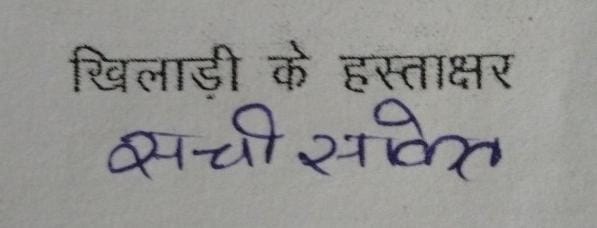 खिलाड़ी के हस्ताक्षर
सची साकेत